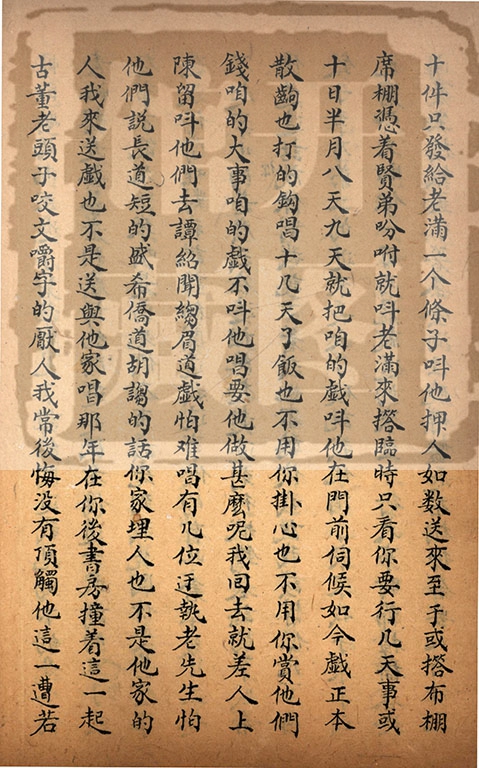 十件只發給老滿一个條子呌他押人如数送來至于或搭布棚
席棚憑着賢弟吩咐就呌老滿來搭臨時只看你要行几天事或
十日半月八天九天就把咱的戲呌他在門前伺候如今戲正本
散齣也打的鈎唱十几天了飯也不用你掛心也不用你賞他們
錢咱的大事咱的戲不呌他唱要他做甚麽呢我回去就差人上
陳留呌他們去譚紹聞縐眉道戲怕难唱有几位迂執老先生怕
他們説長道短的盛希僑道胡謅的話你家埋人也不是他家的
人我來送戲也不是送與他家唱那年在你後書房撞着這一起
古董老頭子咬文嚼字的厭人我常後悔没有頂觸他這一遭若